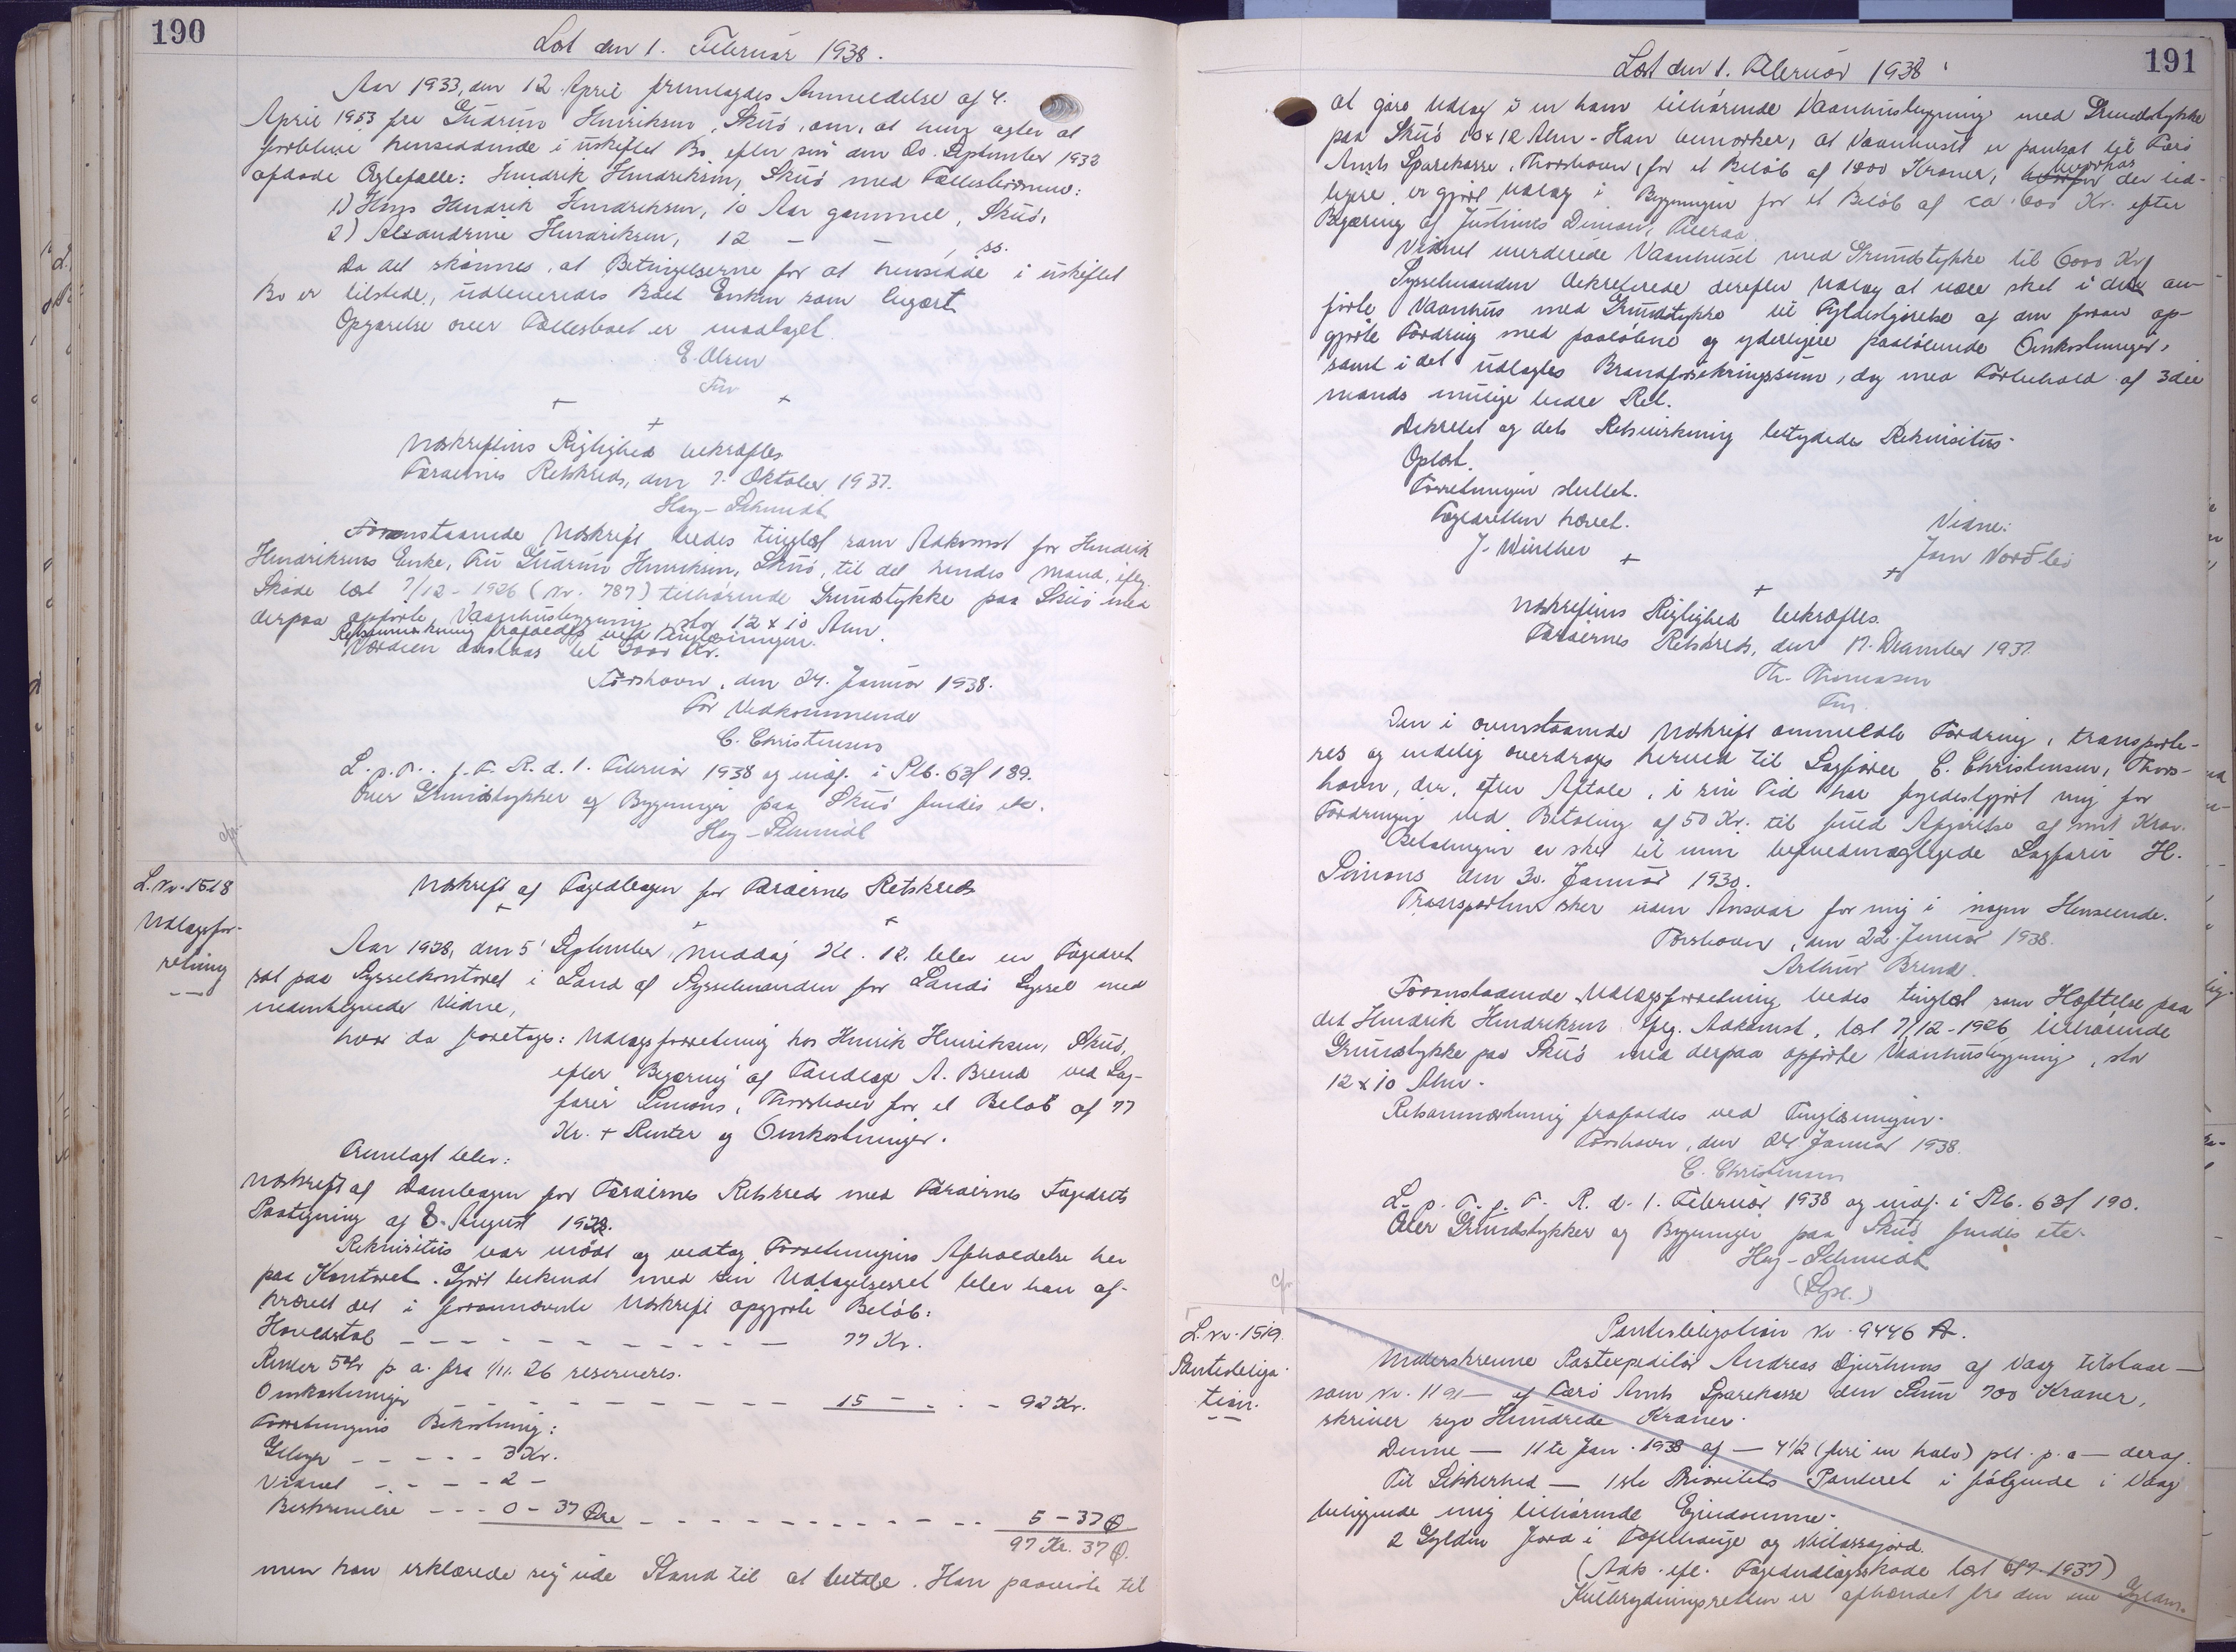 190
Læst den 1. Februar 1938.
Aar 1933, den 12. April fremlagdes Anmeldelse af 4.
April 1933 fra Gudrun Henriksen, Skuö, om, at hun agter at
forblive hensiddende i uskiftet Bo efter sin den 20. September 1932
afdøde Ægtefælle: Hendrik Hendriksen, Skuö med Fællesbørnene:
1) Hans Hendrik Hendriksen, 10 Aar gammel, Skuö,
2) Alexandrine Hendriksen, 12 - - , ss.
Da det skønnes, at Betingelserne for at hensidde i uskiftet
Bo er tilstede, udleveredes Boet Enken som begært
Opgørelse over Fællesboet er modtaget.
E. Olsen
Fm
+ + +
Udskriftens Rigtighed bekræftes
Færøernes Retskreds, den 7. Oktober 1937.
Hey-Schmidt
Foranstaaende Udskrift bedes tinglæst som Adkomst for Hendrik
Hendriksens Enke, Fru Gudrun Henriksen, Skuö, til det hendes Mand, iflg.
Skøde læst 7/12-1926 (Nr. 787) tilhørende Grundstykke paa Skuö med
derpaa opførte Vaanhusbygning, stor 12 x 10 Alen.
Retsanmærkning frafaldes ved Tinglæsningen.
Værdien anslaas til 3000 Kr.
Tórshavn, den 24. Januar 1938.
For Vedkommende
C. Christensen
L. p. T. f. F. R. d. 1. Februar 1938 og indf. i Plb. 63f 189.
Over Grundstykker og Bygninger paa Skuö findes etc.
Hey-Schmidt
cfr.
L. Nr. 1518
Udlægsfor-
retning
Udskrift af Fogedbogen for Færøernes Retskreds
+ + +
Aar 1928, den 5' September, Middag Kl. 12. blev en Fogedret
sat paa Sysselkontoret i Sand af Sysselmanden for Sandö Syssel med
nedentegnede Vidne,
hvor da foretoges: Udlægsforretning hos Henrik Henriksen, Skuö,
efter Begæring af Tandlæge A. Brend ved Sag-
fører Simons, Thorshavn for et Beløb af 77
Kr. + Renter og Omkostninger.
Fremlagt blev:
Udskrift af Dombogen for Færøernes Retskreds med Færøernes Fogedrets
Paategning af 8. August 1928.
Rekvisitus var mødt og vedtog Forretningens Afholdelse her
paa Kontoret. Gjort bekendt med sin Udtagelsesret blev han af-
krævet det i forannævnte Udskrift opgjorte Beløb:
Hovedstol - - - - - - - - - - 77 Kr.
Renter 5% p. a. fra 1/11. 26 reserveres.
Omkostninger - - - - - - - - - 15 - - - 92 Kr.
Forretningens Bekostning:
Gebyr - - - - - 3 Kr.
Vidnet - - - - 2 -
Beskrivelse - - - 0 - 37 Øre - - - - - - - - - - 5 - 37 Ø
97 Kr. 37 Ø.
men han erklærede sig ude Stand til at betale. Han paaviste til
191
Læst den 1. Februar 1938.
at gøre Udlæg i en ham tilhørende Vaanhusbygning med Grundstykke
paa Skuö 10 x 12 Alen - Han bemærker, at Vaanhuset er pantsat til Færø
Amts Sparekasse, Thorshavn, for et Beløb af 1800 Kroner, hvorhos der tid-
ligere er gjort Udlæg i Bygningen for et Beløb af ca. 600 Kr. efter
Begæring af Justinus
Vidnet vurderede Vaanhuset med Grundstykke til 6000 Kr.
Sysselmanden dekreterede derefter Udlæg at være sket i det an-
førte Vaanhus med Grundstykke til Fyldestgjørelse af den foran op-
gjorte Fordring med paaløbne og yderligere paaløbende Omkostninger,
samt i det udlagtes Brandforsikringssum, dog med Forbehold af 3die
Mands mulige bedre Ret.
Dekretet og dets Retsvirkning betydedes Rekvisitus.
Oplæst.
Forretningen sluttet.
Fogedretten hævet.
J. Winther
Vidne:
Joen Nordlei
+ + +
Udskriftens Rigtighed bekræftes.
Færøernes Retskreds, den 17. December 1937.
Th. Thomasen
Fm.
Den i ovenstaaende Udskrift ommeldte Fordring, transporte-
res og endelig overdrages herved til Sagfører C. Christensen, Thors-
havn, der, efter Aftale, i sin Tid har fyldestgjort mig for
Fordringen ved Betaling af 50 Kr. til fuld Afgørelse af mit Krav.
Betalingen er sket til min befuldmægtigede Sagfører H.
Simons den 30. Januar 1930.
Transporten sker uden Ansvar for mig i nogen Henseende.
Tórshavn, den 22. Januar 1938.
Arthur Brend.
Foranstaaende Udlægsforretning bedes tinglæst som Hæftelse paa
det Hendrik Hendriksen iflg. Adkomst, læst 7/12-1926 tilhørende
Grundstykke paa Skuö med derpaa opførte Vaanhusbygning, stor
12 x 10 Alen.
Retsanmærkning frafaldes ved Tinglæsningen.
Tórshavn, den 24 Januar 1938.
C. Christensen
L. p. T. f. F. R. d. 1. Februar 1938 og indf. i Plb. 63f 190.
Over Grundstykker og Bygninger paa Skuö findes etc.
Hey-Schmidt
cfr.
L. Nr. 1519.
Panteobliga-
tion.
Panteobligation Nr. 9446 A.
Underskrevne Postexpeditør Andreas Djurhuus af Vaag tilstaar —
som Nr. 1191 — af Færø Amts Sparekasse den Sum 700 Kroner,
skriver syv Hundrede Kroner.
Denne — 11te Jan. 1938 af — 4 1/2 (fire en halv) pCt. p. a — deraf.
Til Sikkerhed — 1ste Prioritets Panteret i følgende i Vaag
beliggende mig tilhørende Ejendomme:
2 Gylden Jord i Toftehauje og
(Adk. ifl. Fogedudlægsskøde læst 1937)
Kulbrydningsretten er afhændet fra den ene Gylden.